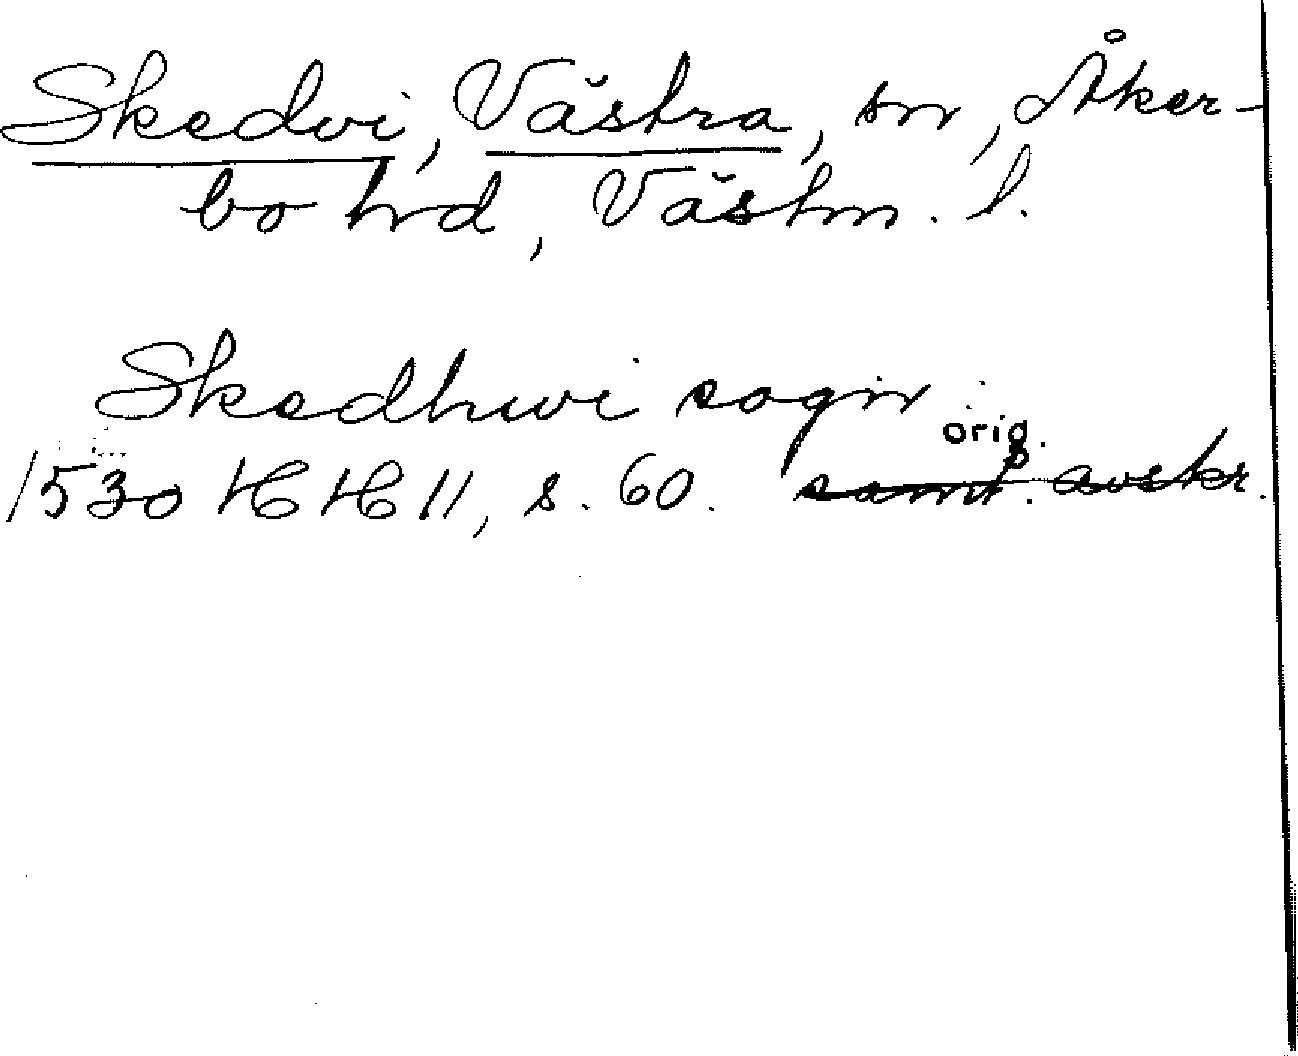 Skedvi, Västra, sn, Åker-
bo hrd, Västm. l.
Skedhwi sogn
orig.
1530 HH 11, s. 60. samt. avskr.